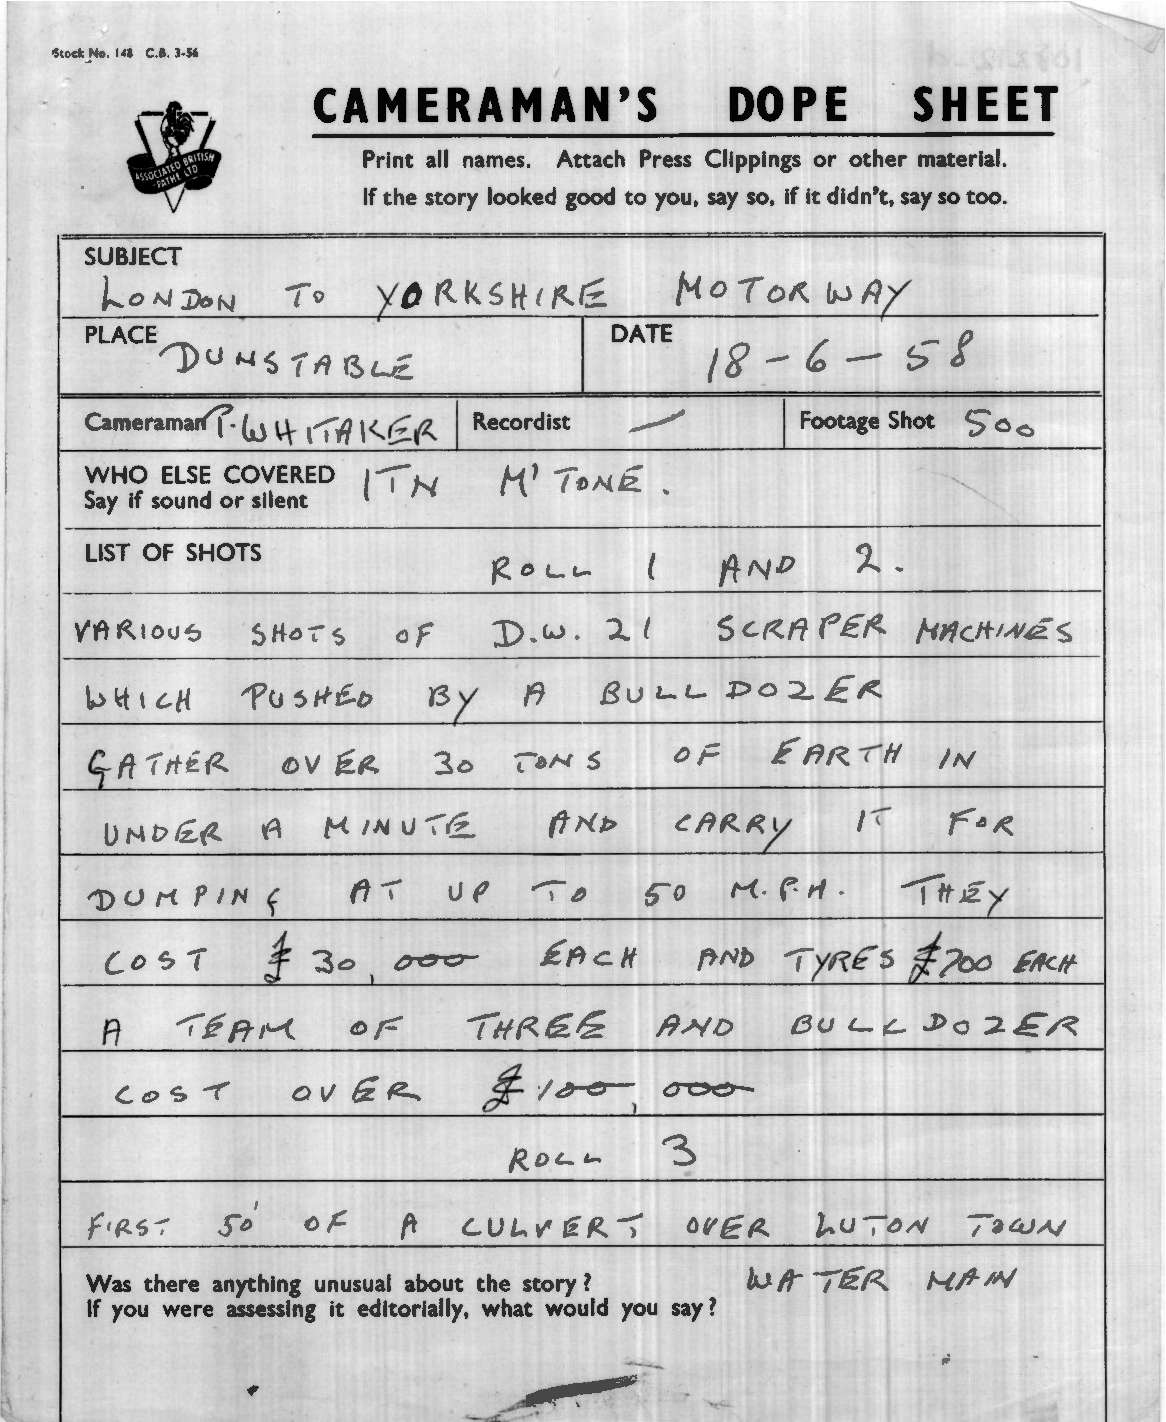 Stock No. 148 C.B. 3-56
CAMERAMAN'S DOPE SHEET
ASSOCIATED BRITISH
PATHE LTD
Print all names. Attach Press Clippings or other material.
If the story looked good to you, say so, if it didn't, say so too.
SUBJECT
LONDON TO YORKSHIRE MOTORWAY
PLACE DUNSTABLE
DATE 18-6-58
Cameraman P. WHITAKER
Recordist —
Footage Shot 500
WHO ELSE COVERED
Say if sound or silent
ITN M'TONE.
LIST OF SHOTS
ROLL 1 AND 2.
VARIOUS SHOTS OF D.W. 21 SCRAPER MACHINES
WHICH PUSHED BY A BULLDOZER
GATHER OVER 30 TONS OF EARTH IN
UNDER A MINUTE AND CARRY IT FOR
DUMPING AT UP TO 50 M.P.H. THEY
COST £30,000 EACH AND TYRES £700 EACH
A TEAM OF THREE AND BULLDOZER
COST OVER £100,000
ROLL 3
FIRST 50' OF A CULVERT OVER LUTON TOWN
WATER MAIN
Was there anything unusual about the story?
If you were assessing it editorially, what would you say?